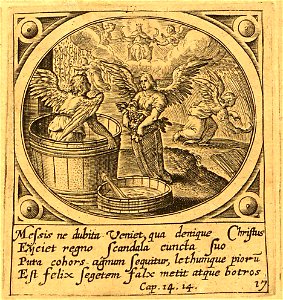 Messis ne dubita Veniet, qua denique Christus
Eijciet regno scandala cuncta suo
Pura cohors agnum sequitur, lethumque piorū
Est felix segetem falx metit atque botros
Cap. 14. 14. 17